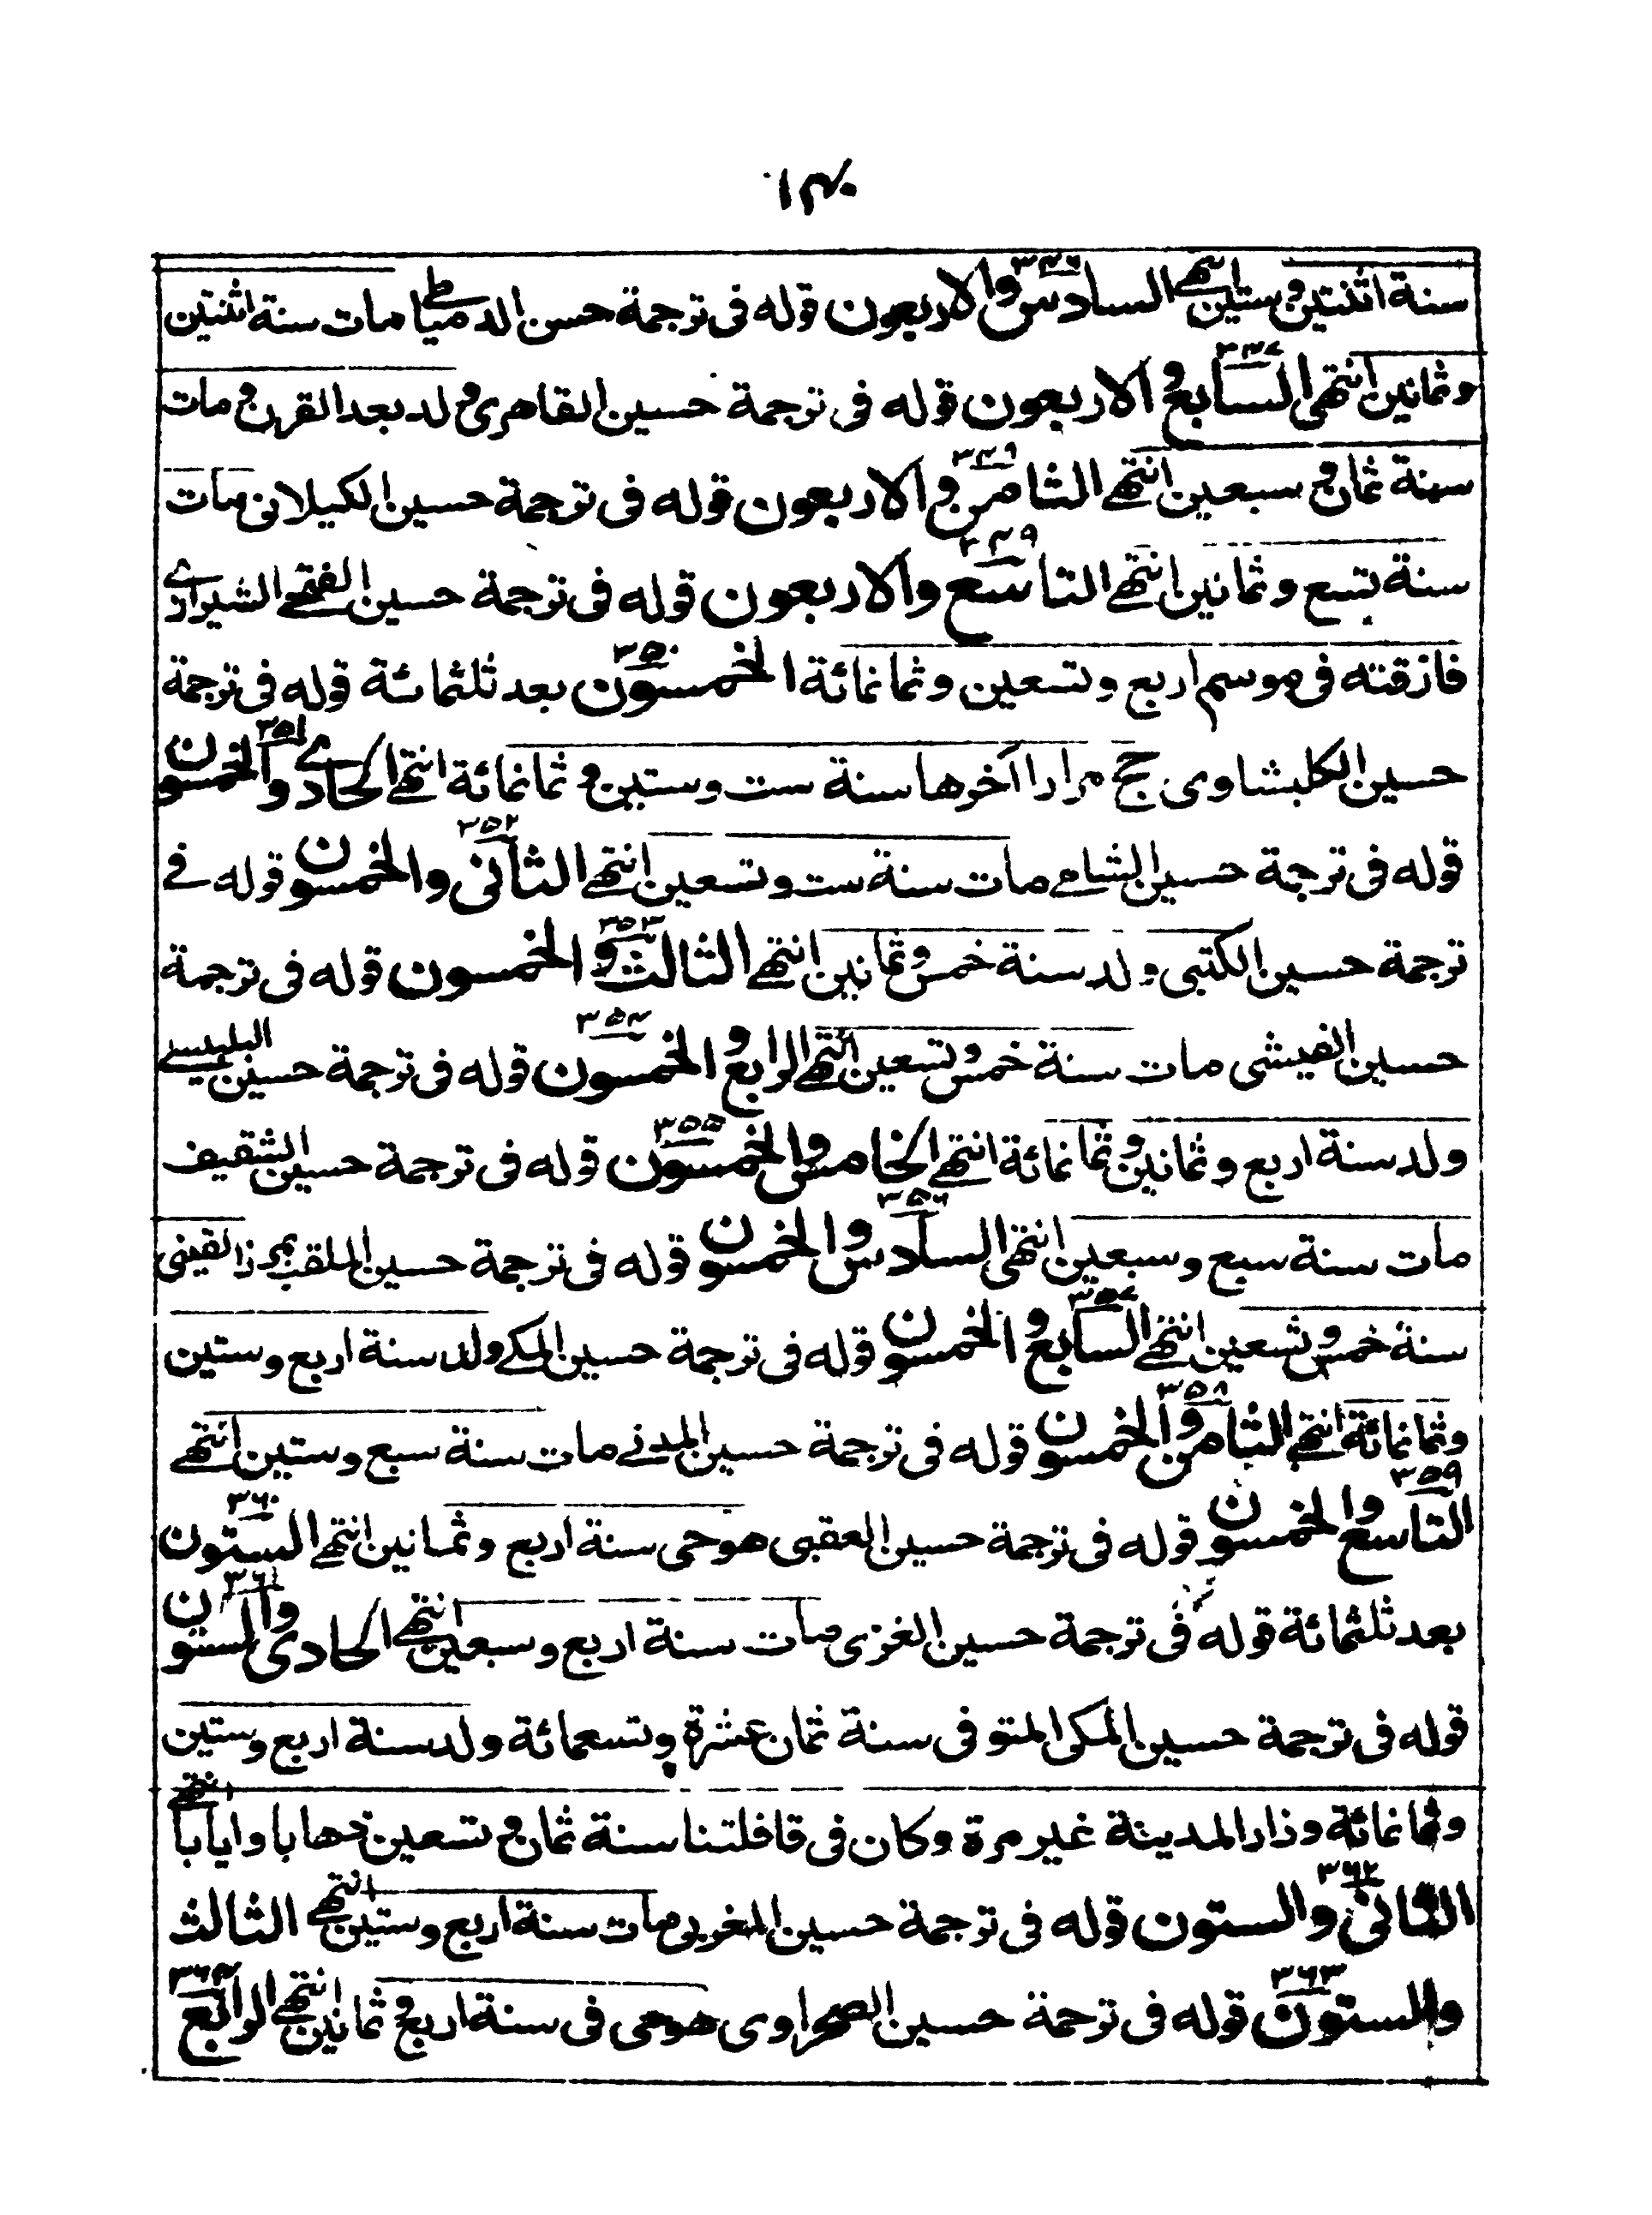 ١٣٠
سنة اثنتين وستين انتهے السادس والاربعون ٣٤٦ قوله فى ترجمة حسن الدمياطے مات سنة اثنتين
وثمانين انتهى السابع والاربعون ٣٤٧ قوله فى ترجمة حسين القاهرى ولد بعد القرن ومات
سنة ثمان وسبعين انتهے الثامن والاربعون ٣٤٩ قوله فى ترجمة حسين الكيلانى مات
سنة تسع وثمانين انتهے التاسع والاربعون ٣٤٩ قوله فى ترجمة حسين الفتحے الشيرازے
فازقنه فى موسم اربع وتسعين وثمانمائة الخمسون ٣٥٠ بعد ثلثمائة قوله فى ترجمة
حسين الكلبشاوى حج مرارا آخرها سنة ست وستين وثمانمائة انتهے الحادے والخمسون ٣٥١
قوله فى ترجمة حسين الشامے مات سنة ست وتسعين انتهے الثانى والخمسون ٣٥٢ قوله فے
ترجمة حسين الكتبى ولد سنة خمس وثمانين انتهے الثالث والخمسون ٣٥٣ قوله فى ترجمة
حسين الفيشى مات سنة خمس وتسعين انتهے الرابع والخمسون ٣٥٤ قوله فى ترجمة حسين البلبيسے
ولد سنة اربع وثمانين وثمانمائة انتهے الخامس والخمسون ٣٥٥ قوله فى ترجمة حسين الشقيف
مات سنة سبع وسبعين انتهى السادس والخمسون ٣٥٦ قوله فى ترجمة حسين الملقب
سنة خمس وتسعين انتهے السابع والخمسون ٣٥٧ قوله فى ترجمة حسين المكے ولد سنة اربع وستين
وثمانمائة انتهے الثامن والخمسون ٣٥٨ قوله فى ترجمة حسين المدنے مات سنة سبع وستين انتهے
التاسع والخمسون ٣٥٩ قوله فى ترجمة حسين العقبى هو حى سنة اربع وثمانين انتهے الستون ٣٦٠
بعد ثلثمائة قوله فى ترجمة حسين الغزى مات سنة اربع وسبعين انتهے الحادى والستون ٣٦١
قوله فى ترجمة حسين المكى المتوفى سنة ثمان عشرة وتسعمائة ولد سنة اربع وستين
وثمانمائة وزار المدينة غير مرة وكان فى قافلتنا سنة ثمان وتسعين ذهابا وايابا انتهے
الثانى والستون ٣٦٢ قوله فى ترجمة حسين المغربى مات سنة اربع وستين انتهے الثالث
والستون ٣٦٣ قوله فى ترجمة حسين الصحراوى هو حى فى سنة اربع وثمانين انتهے الرابع ٣٦٤